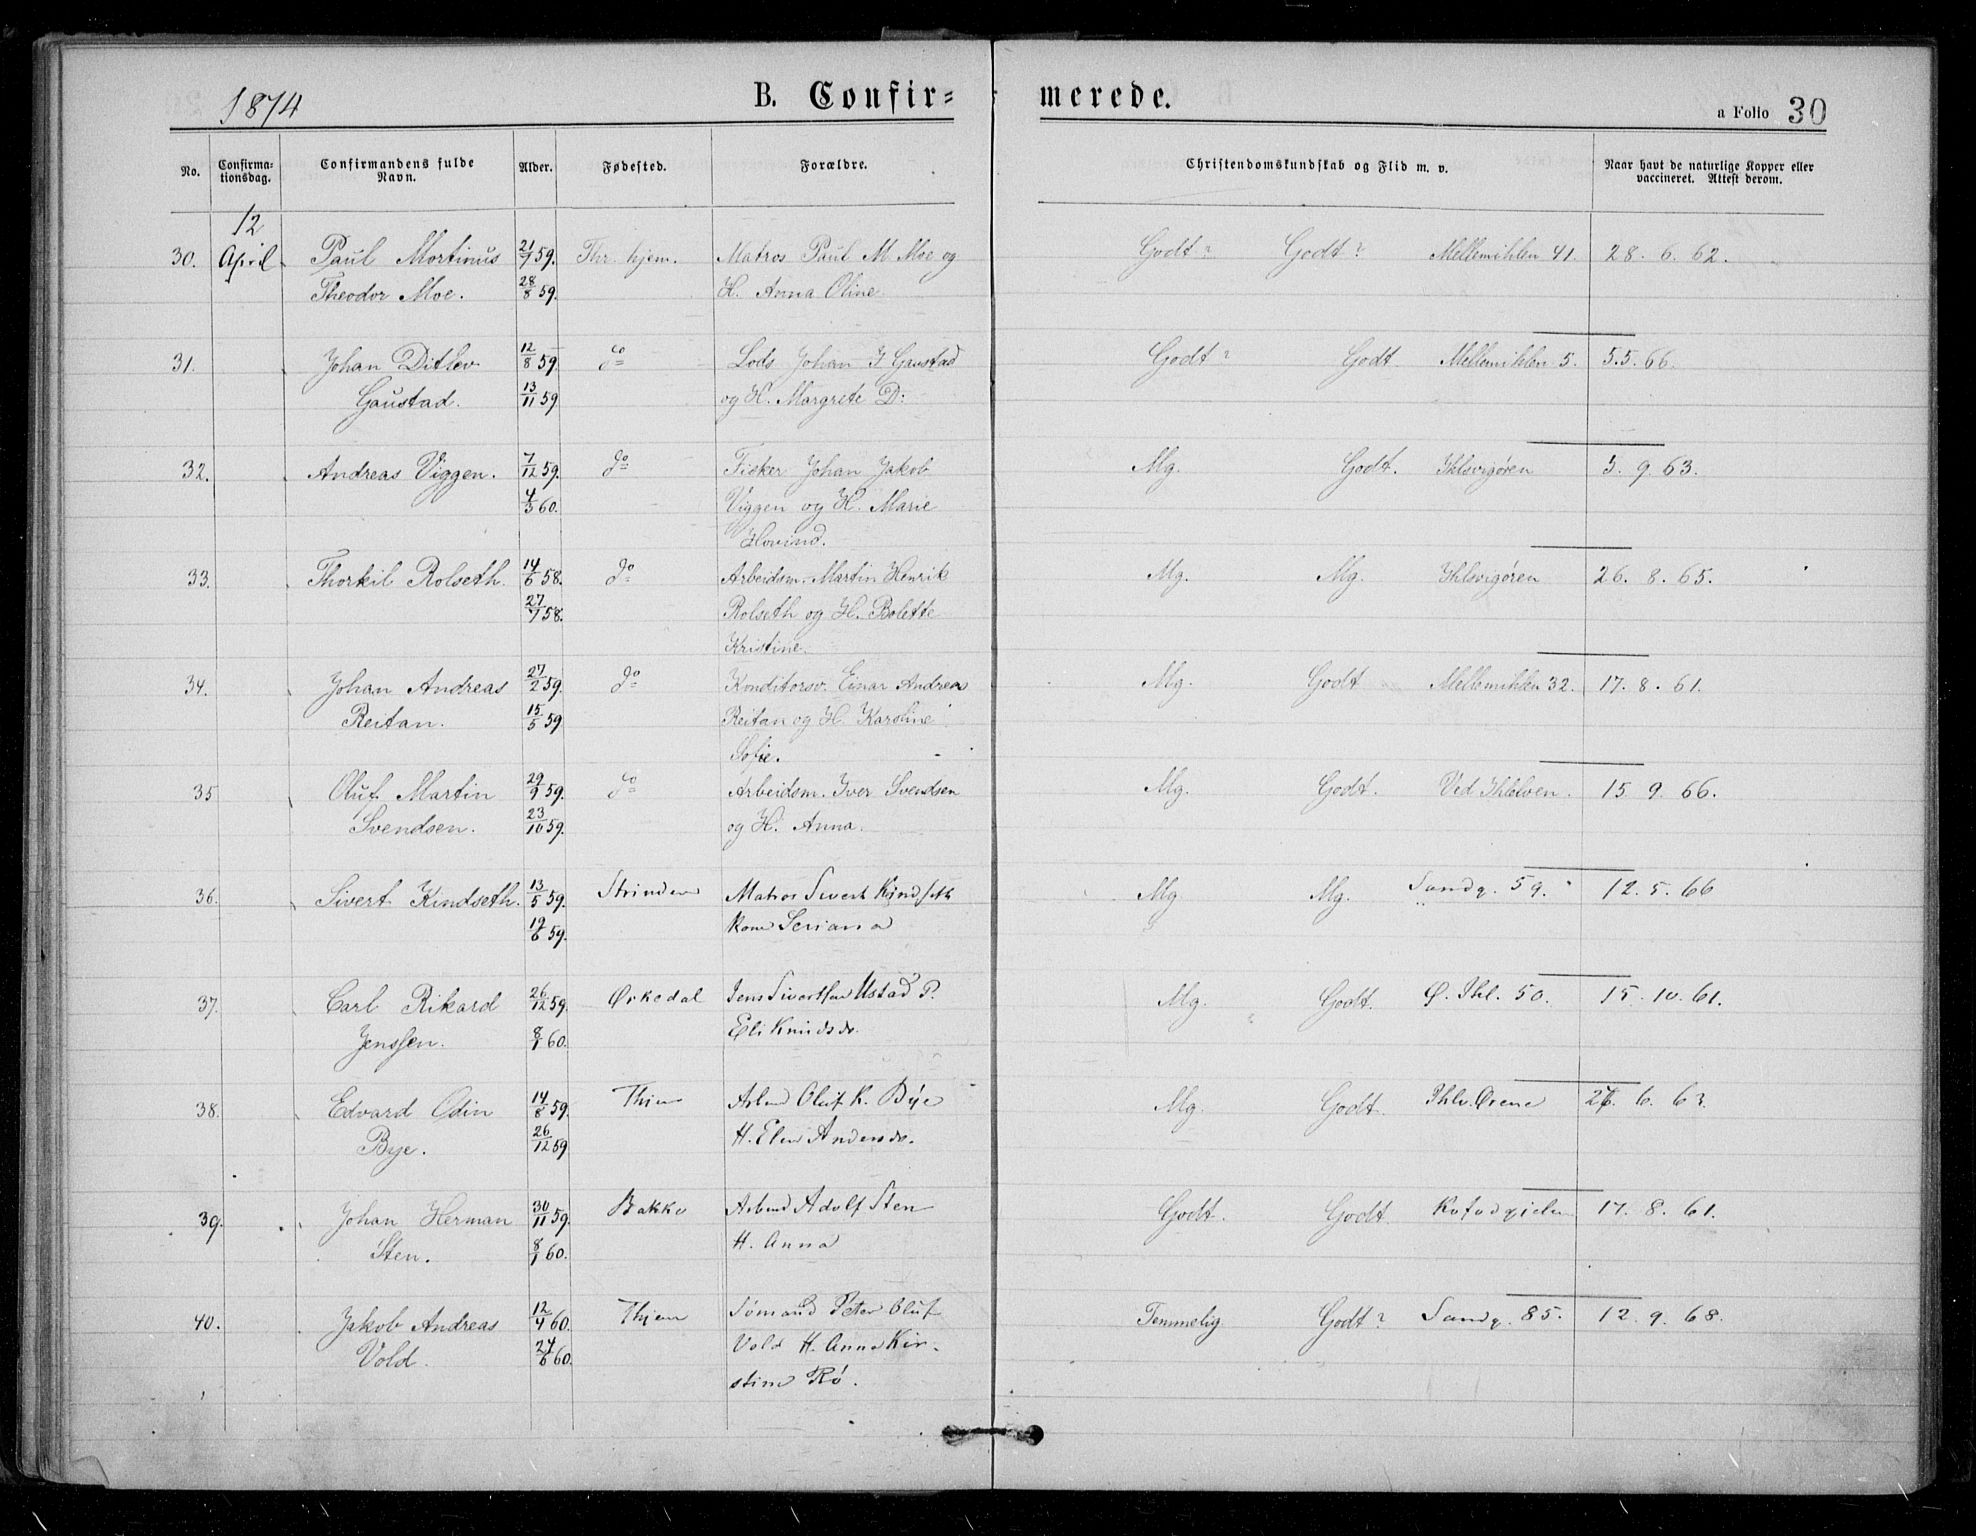 1874 B. Confir= merede. a Folio 30
No. Confirma-tionsdag. Confirmandens fulde Navn. Alder. Fødested. Forældre. Christendomskundskab og Flid m. v. Naar havt de naturlige Kopper eller vaccineret. Attest derom.
12
30. April Paul Mortinus 21/7 59. Thr. hjem. Matros Paul M. Moe og Godt ? Godt ? Mellemihlen 41. 28. 6. 62.
Theodor Moe. 28/8 59. H. Anna Oline
31. Johan Ditlev 12/8 59. do Lods Johan J Gaustad Godt ? Godt Mellemihlen 5. 5.5. 66.
Gaustad. 13/11 59 og H. Margrete D:
32. Andreas Viggen. 7/12 59. do Fisker Johan Jakob Mg. Godt. Ihlsvigøren 5. 9. 63.
4/3 60. Viggen og H. Marie
Hovind.
33. Thorkil Rolseth. 14/6 58. do Arbeidsm. Martin Henrik Mg. Mg. Ihlsvigøren 26. 8. 65.
27/7 58. Rolseth og H. Bolette
Kristine.
34. Johan Andreas 27/2 59. do Konditorsv. Einar Andreas Mg. Godt Mellemihlen 32. 17. 8. 61.
Reitan. 15/5 59 Reitan og H. Karoline
Sofie.
35 Oluf Martin 29/9 59. do Arbeidsm. Iver Svendsen Mg. Godt. Ved Ihlelven. 15. 9. 66.
Svendsen. 23/10 59. og H. Anna.
36. Sivert Kindseth. 13/5 59. Strinden Matros Sivert Kindseth Mg Mg. Sandg. 59. 12. 5. 66
19/6 59. Kone Seriana
37. Carl Rikard 26/12 59. Ørkedal Jens Sivertsen Ustad P. Mg. Godt. Ø. Ihl. 50. 15. 10. 61.
Jenssen. 8/1 60. Eli Knudsd.
38. Edvard Odin 14/8 59. Thjem Arbmd Oluf K. Bye Mg. Godt. Ihlv. Ørene 26. 6. 63.
Bye. 26/12 59 H. Elen Andersd.
39. Johan Herman 30/11 59. Bakke Arbmd Adolf Sten Godt. Godt. 17. 8. 61.
Sten. 8/1 60. H. Anna
40. Jakob Andreas 12/4 60. Thjem Sømand Peter Oluf Temmelig Godt ? Sandg. 85. 12. 9. 68.
Vold. 24/6 60. Vold H. Anna Kir-
stine Rø.